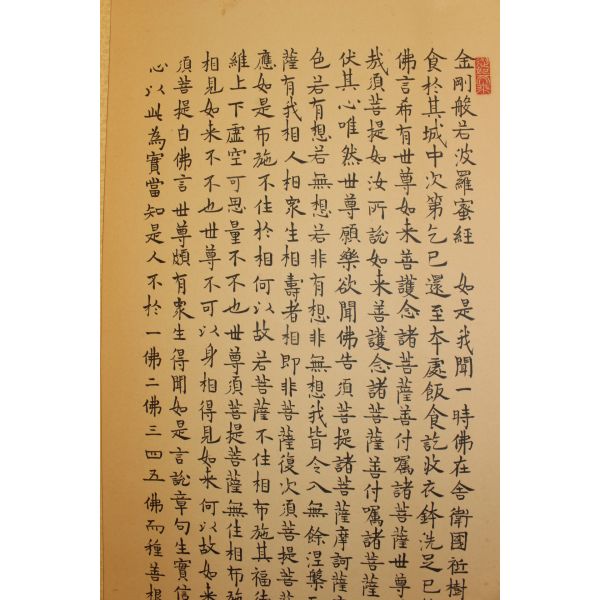 金剛般若波羅蜜經 如是我聞一時佛在舍衛國祇樹
食於其城中次第乞已還至本處飯食訖收衣鉢洗足已
佛言希有世尊如來善護念諸菩薩善付囑諸菩薩世尊
哉須菩提如汝所說如來善護念諸菩薩善付囑諸菩薩
伏其心唯然世尊願樂欲聞佛告須菩提諸菩薩摩訶薩
色若有想若無想若非有想非無想我皆令入無餘涅槃
薩有我相人相衆生相壽者相即非菩薩復次須菩提菩
應如是布施不住於相何以故若菩薩不住相布施其福德
維上下虛空可思量不不也世尊須菩提菩薩無住相布施
相見如來不不也世尊不可以身相得見如來何以故如來
須菩提白佛言世尊頗有衆生得聞如是言說章句生實信
心以此為實當知是人不於一佛二佛三四五佛而種善根